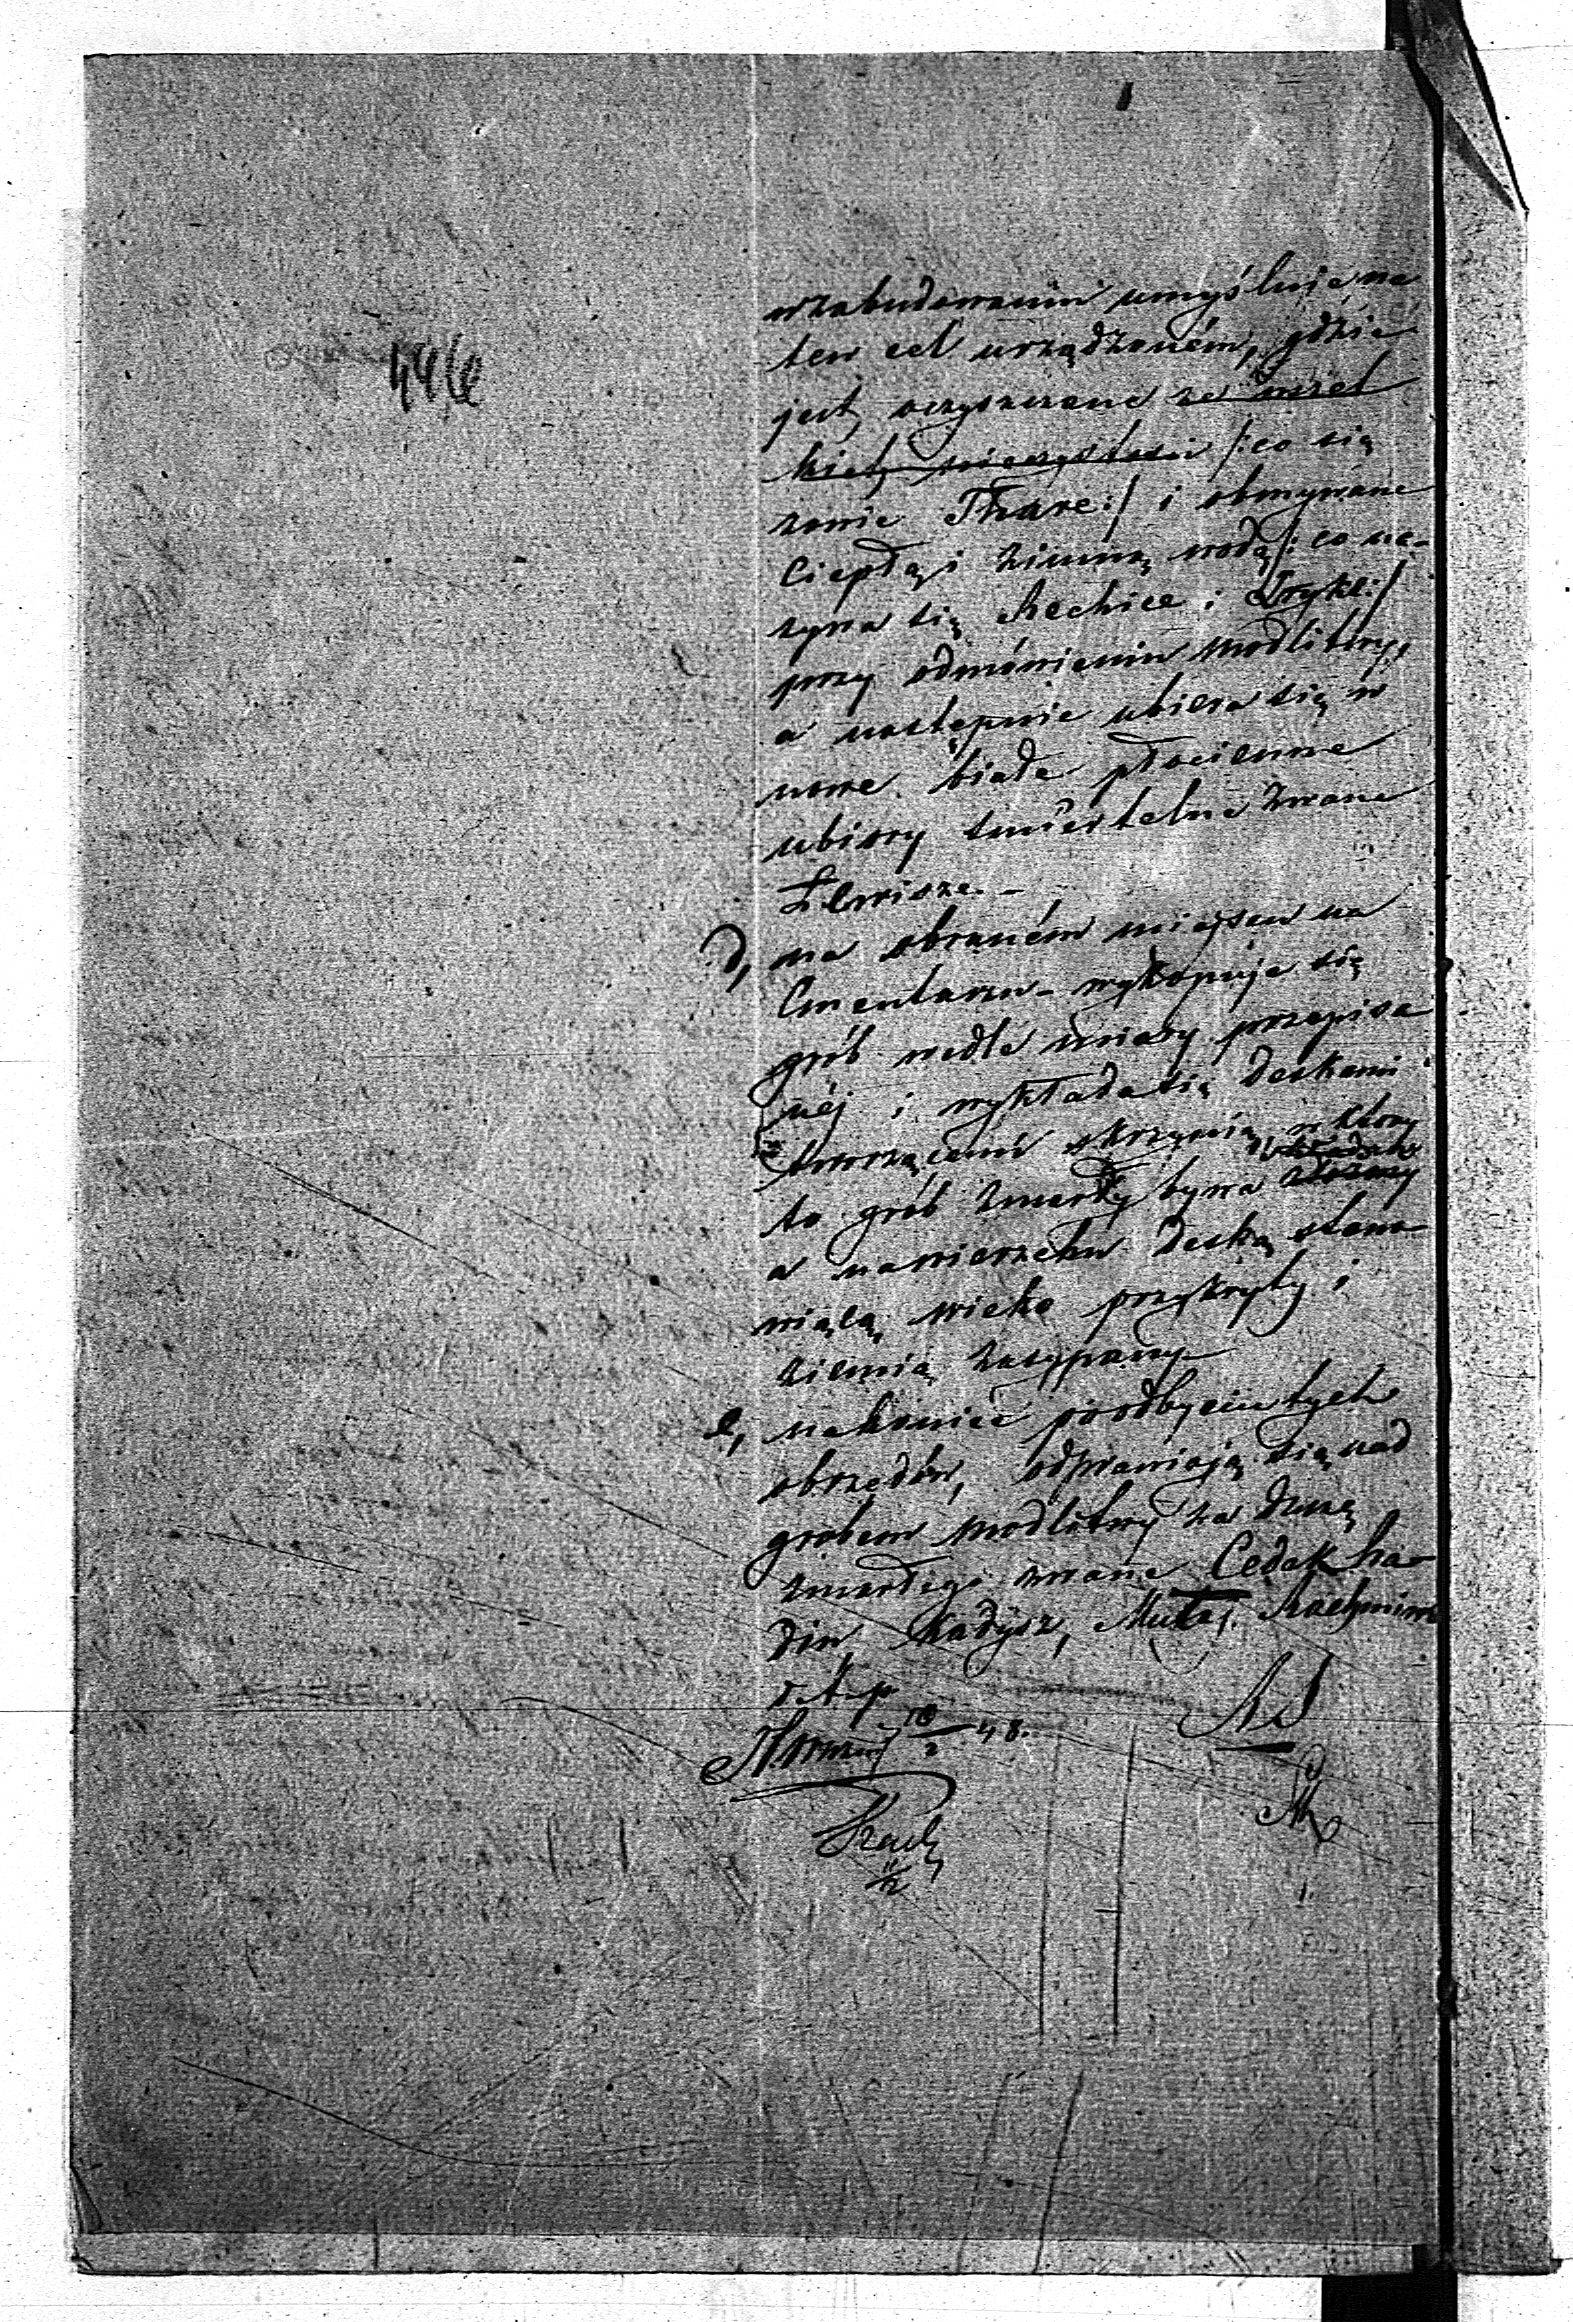 w zabudowaniu umyślnie na
ten cel urządzoném, gdzie
jest, oczyszczane ze wszel
kich nieczystości /:co się
zowie Thare:/ i obmywane
Ciepłą i zimną wodą /:co na-
zywa się Rechice i
przy odmówieniu modlitwy,
a następnie ubiera się w
nowe białe płócienne
ubiory śmiertelne zwane
d, na obraném miejscu na
Cmentarzu - wykopuje się
grób wedle miary przepisa
néj i wykłada się deskami
tworzącemi skrzynię, w który
to grób zmarły bywa złożony
a nawierzchu deską stano
wiącą wieko przykryty i
ziemią zasypany -
e, nakoniec po odbyciu tych
obrzędów, odprawiają się nad
grobem modlitwy za duszę
zmarłego zwane Cedak ha-
din Kadysz, Rachmim
i t. p.
48.